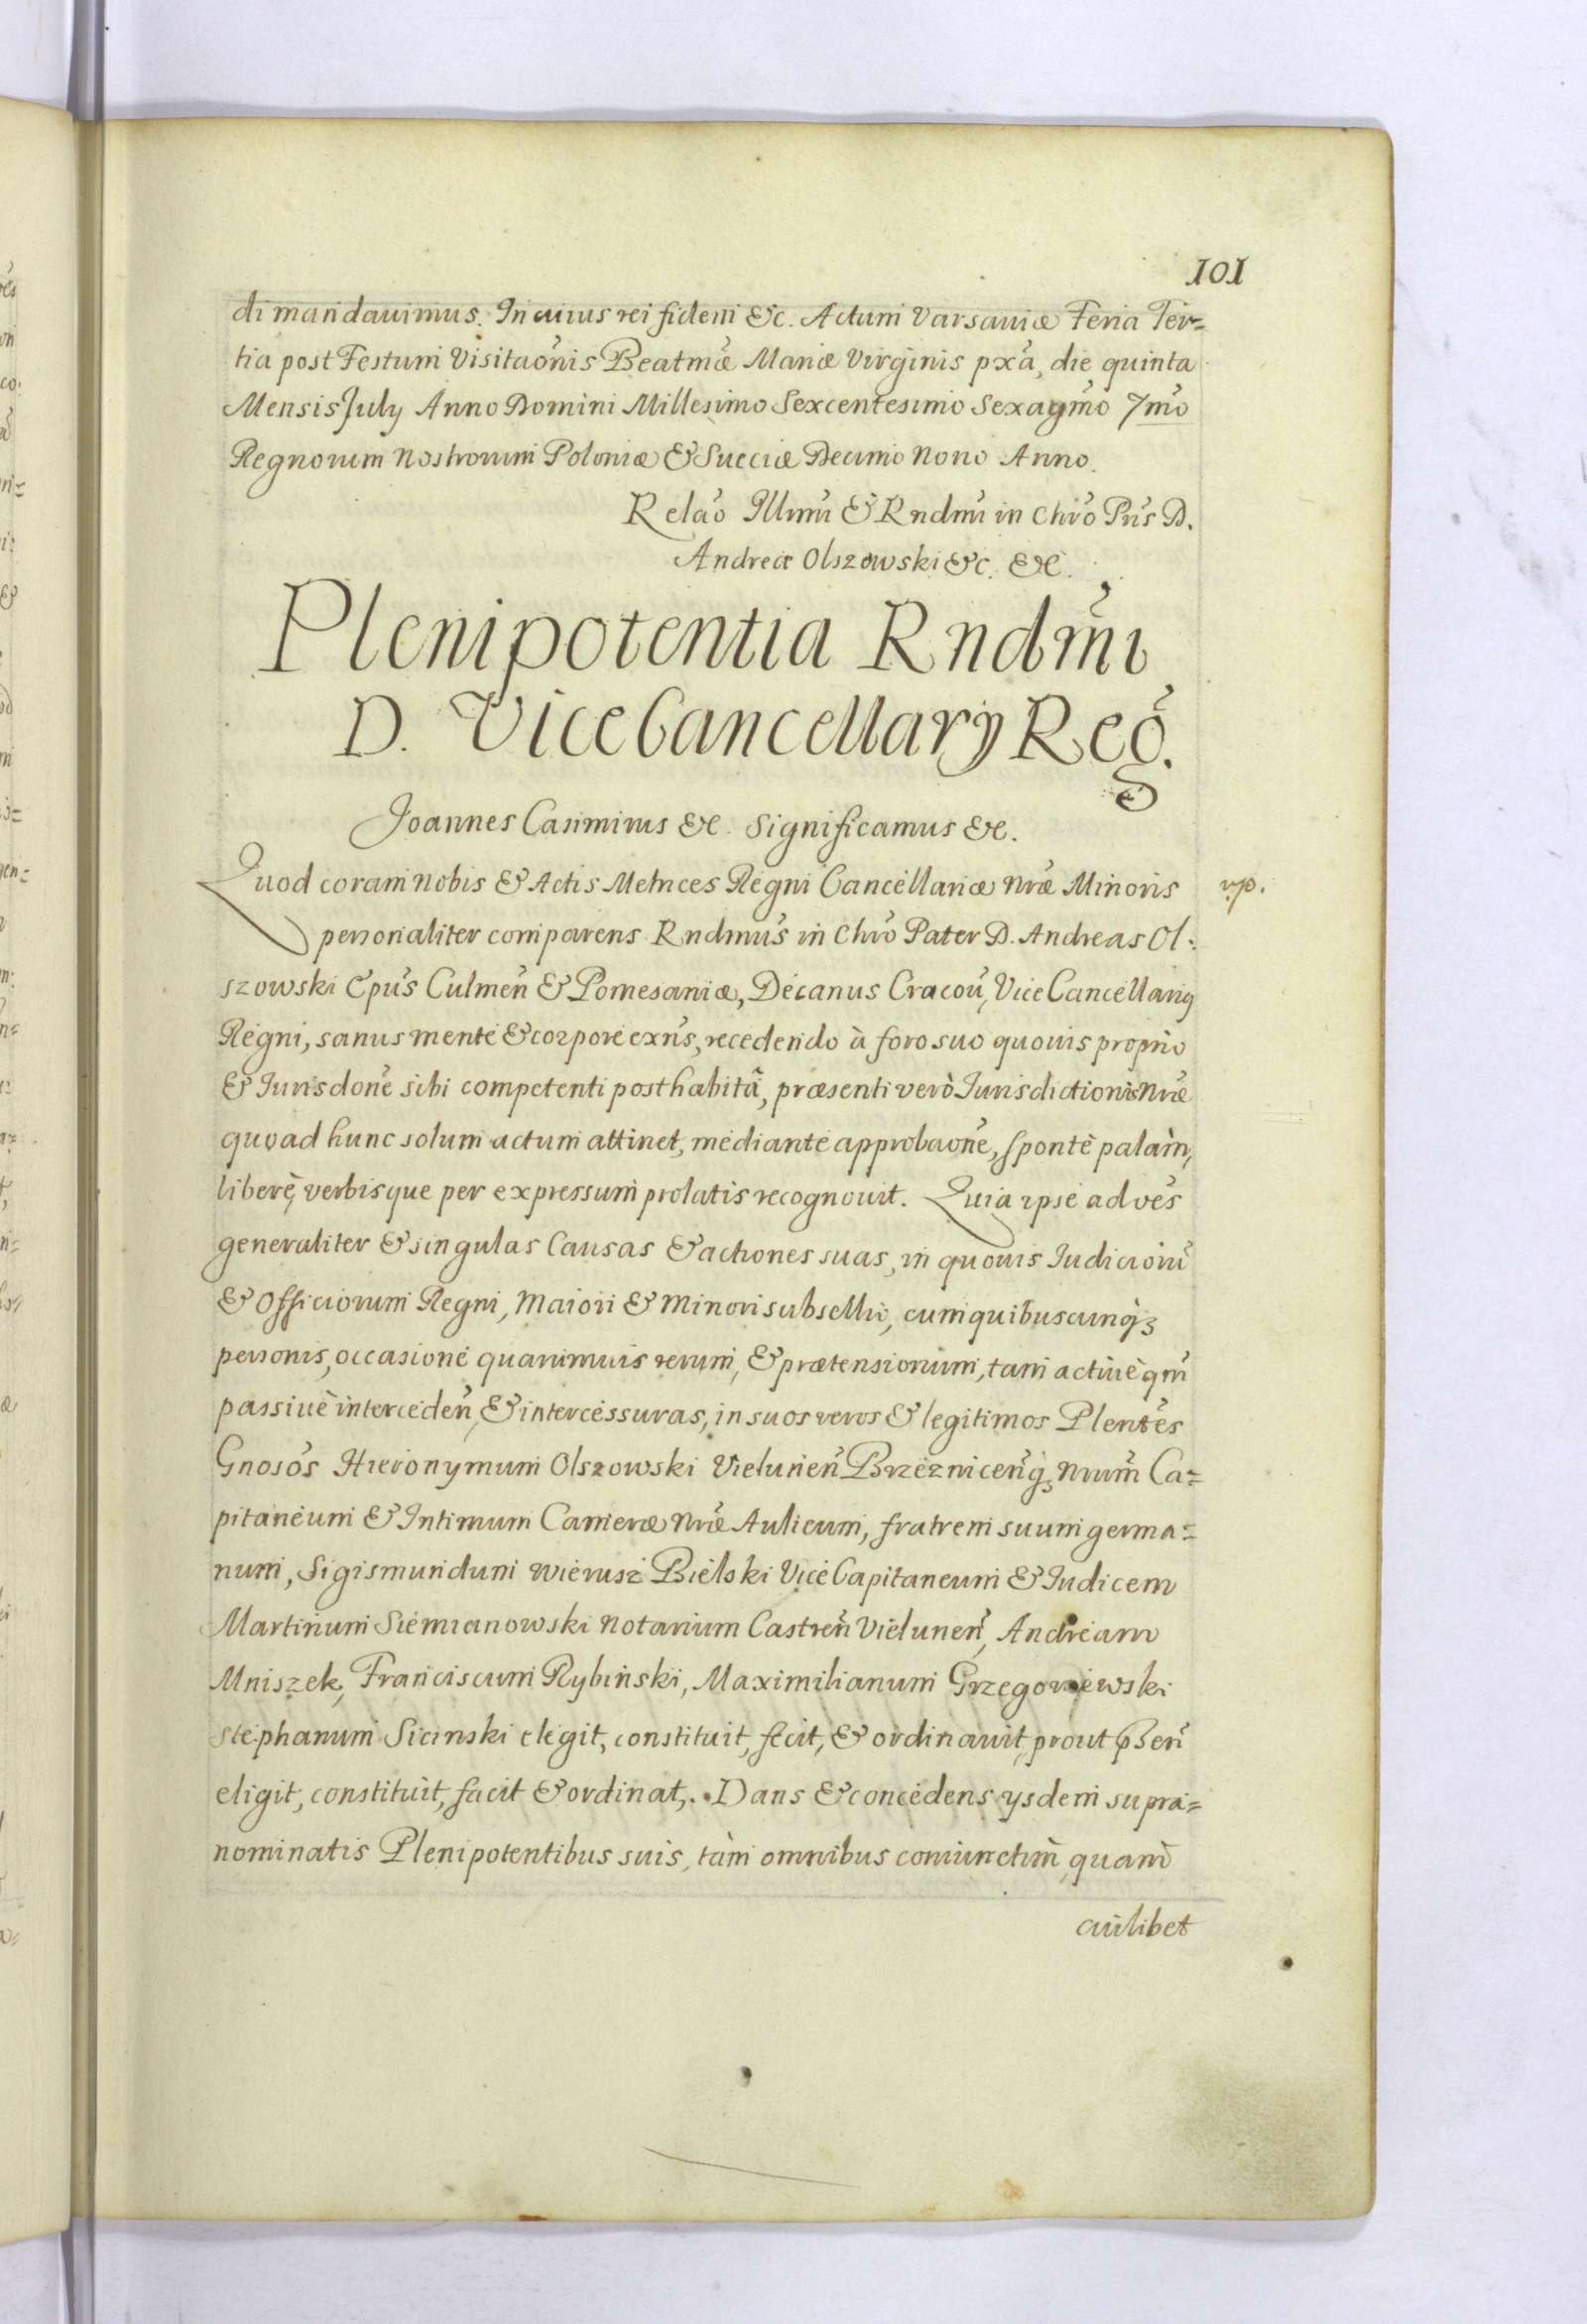 101
di mandauimus. In cuius rei fidem &c. Actum Varsauiæ Feria Ter=
tia post Festum Visitaõnis Beatmæ Mariæ Virginis pxã, die quinta
Mensis July Anno Domini Millesimo Sexcentesimo Sexagmõ 7mõ
Regnorum Nostrorum Poloniæ & Sueciæ Decimo Nono Anno.
Relaõ Illmi & Rndmi in Chrõ Prĩs D.
Andreæ Olszowski &c. &c.
Plenipotentia Rndmĩ
D. ViceCancellarÿ Reg̃.
Joannes Casimirus &c. Significamus &c.
Quod coram Nobis & Actis Metrices Regni Cancellariæ Nræ Minoris
vp.
personaliter comparens Rndmus in Chrõ Pater D. Andreas Ol:
szowski Epũs Culmeñ & Pomesaniæ, Decanus Cracoũ, ViceCancellarÿ
Regni, sanus mente & corpore exñs, recedendo à foro suo quouis proprio
& Jurisdonẽ sibi competenti posthabitâ, præsenti verò Jurisdictionis Nræ
quoad hunc solum actum attinet, mediante approbaonẽ, sponte palàm,
liberè, verbisque per expressum prolatis recognouit. Quia ipse ad oẽs
generaliter & singulas Causas & actiones suas, in quouis Judiciorũ
& Officiorum Regni, Maiori & Minori subsellio, cum quibuscunqȝ
personis, occasione quarumuis rerum, & prætensionum, tam actiuè qm̃
passiuè intercedeñ, & intercessuras, in suos veros & legitimos Plentẽs
Gnosõs Hieronymum Olszowski Vieluneñ Brzeźniceñqȝ Nrum̃ Ca=
pitaneum & Intimum Cameræ Nræ Aulicum, fratrem suum germa=
num, Sigismundum Wierusz Bielski ViceCapitaneum & Judicem
Martinum Siemianowski Notarium Castreñ Vieluneñ, Andream
Mniszek, Franciscum Rybiński, Maximilianum Grzegorzewski
Stephanum Sicinski elegit, constituit, fecit, & ordinauit, prout p̃señ
eligit, constituit, facit & ordinat,. Dans & concedens ÿsdem supra=
nominatis Plenipotentibus suis, tàm omnibus coniunctim, quam
cuilibet